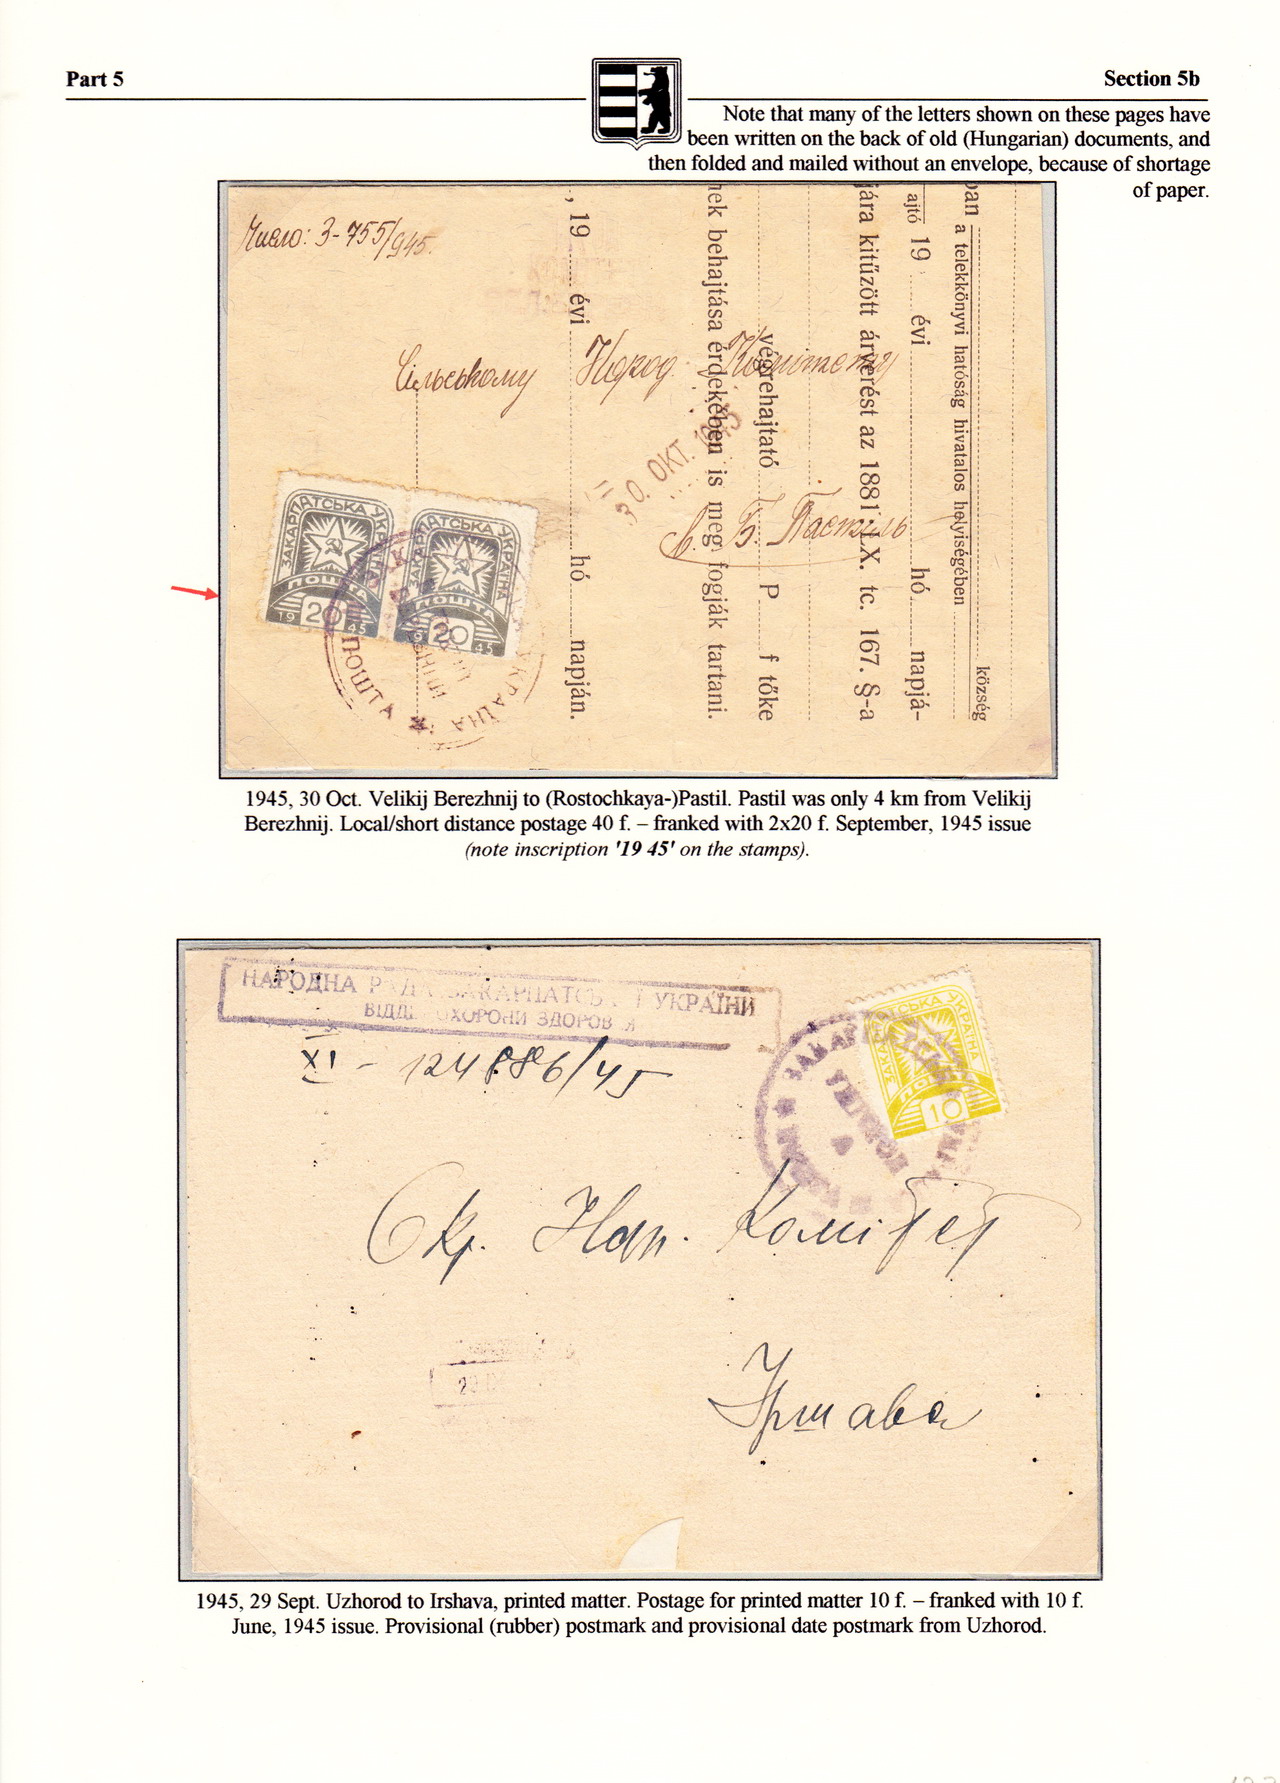 Part 5
Section 5b
Note that many of the letters shown on these pages have
been written on the back of old (Hungarian) documents, and
then folded and mailed without an envelope, because of shortage
of paper.
Число: 3-755/945.
Сільському Народ. Комітету
с. Б. Пастиль
30. OKT. 1945
ЗАКАРПАТСЬКА УКРАЇНА
ПОШТА
19 20 45
ЗАКАРПАТСЬКА УКРАЇНА
ПОШТА
19 20 45
УКРАЇНА
ПОШТА
község
a telekkönyvi hatóság hivatalos helyiségében
ajtó 19 évi hó napjá-
jára kitűzött árverést az 1881 LX. tc. 167. §-a
végrehajtató P f tőke
nek behajtása érdekében is meg fogják tartani.
, 19 évi hó napján.
1945, 30 Oct. Velikij Berezhnij to (Rostochkaya-)Pastil. Pastil was only 4 km from Velikij
Berezhnij. Local/short distance postage 40 f. – franked with 2x20 f. September, 1945 issue
(note inscription '19 45' on the stamps).
НАРОДНА РАДА ЗАКАРПАТСЬ І УКРАЇНИ
ВІДДІ ОХОРОНИ ЗДОРОВ Я
XI - 124886/45
ЗАКАРПАТСЬКА УКРАЇНА
ПОШТА
10
Окр. Нар. Комітет
Іршава
1945, 29 Sept. Uzhorod to Irshava, printed matter. Postage for printed matter 10 f. – franked with 10 f.
June, 1945 issue. Provisional (rubber) postmark and provisional date postmark from Uzhorod.